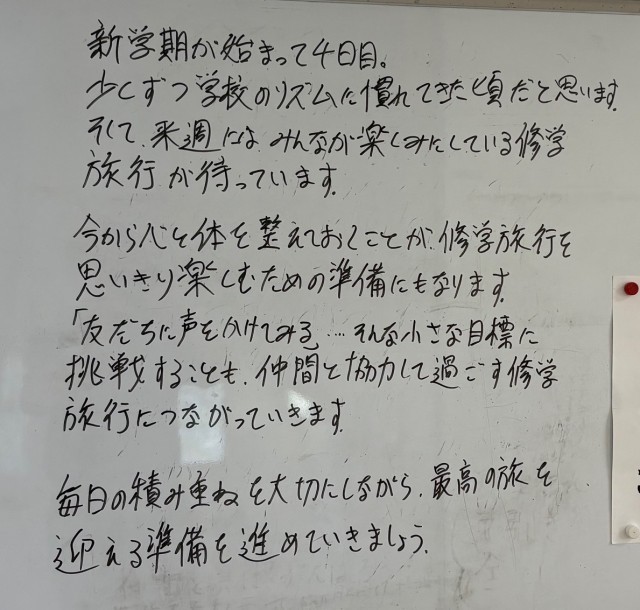 新学期が始まって4日目。
少しずつ学校のリズムに慣れてきた頃だと思います。
そして、来週にはみんなが楽しみにしている修学
旅行が待っています。
今から心と体を整えておくことが、修学旅行を
思いきり楽しむための準備にもなります。
「友だちに声をかけてみる」…そんな小さな目標に
挑戦することも、仲間と協力して過ごす修学
旅行につながっていきます。
毎日の積み重ねを大切にしながら、最高の旅を
迎える準備を進めていきましょう。